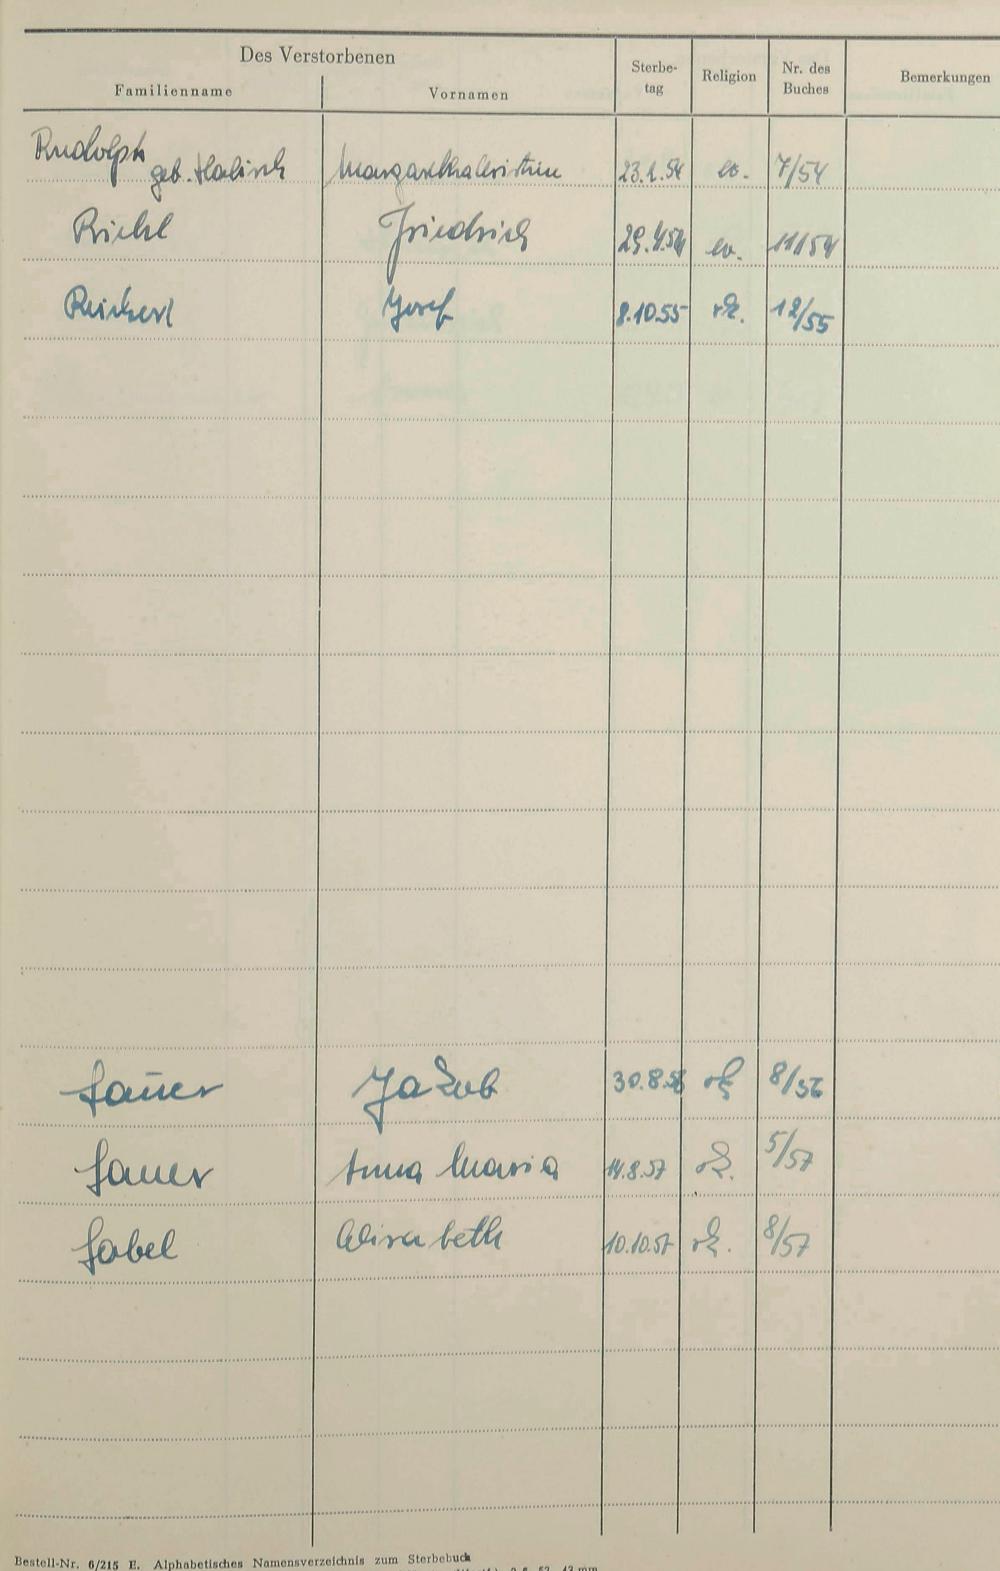 Des Verstorbenen
Familienname Vornamen Sterbe-tag Religion Nr. des Buches Bemerkungen
Rudolph geb. 23.1.54 ev. 7/54
Friedrich 29.4.54 ev. 11/54
Reichert Josef 8.10.55 rk. 12/55
Sauer Jakob 30.8.56 rk 8/56
Sauer Anna Maria 14.8.57 rk. 5/57
Sabel Elisabeth 10.10.57 rk. 8/57
Bestell-Nr. 6/215 E. Alphabetisches Namensverzeichnis zum Sterbebuch